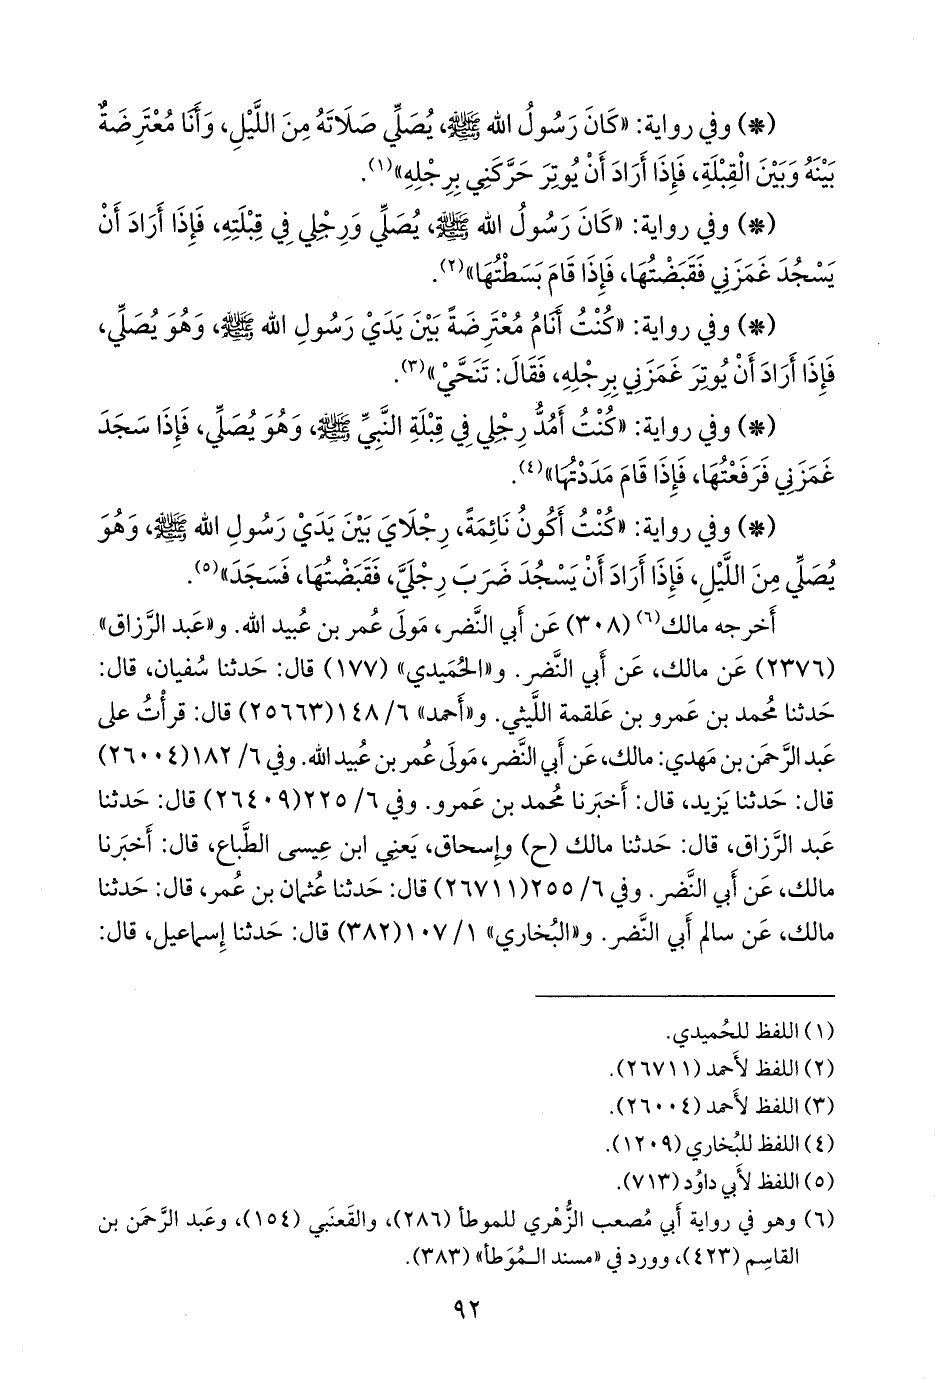 (*) وفي رواية: «كَانَ رَسُولُ الله ﷺ، يُصَلِّي صَلَاتَهُ مِنَ اللَّيْلِ، وَأَنَا مُعْتَرِضَةٌ
بَيْنَهُ وَبَيْنَ الْقِبْلَةِ، فَإِذَا أَرَادَ أَنْ يُوتِرَ حَرَّكَنِي بِرِجْلِهِ»(١).
(*) وفي رواية: «كَانَ رَسُولُ الله ﷺ، يُصَلِّي وَرِجْلِي فِي قِبْلَتِهِ، فَإِذَا أَرَادَ أَنْ
يَسْجُدَ غَمَزَنِي فَقَبَضْتُهَا، فَإِذَا قَامَ بَسَطْتُهَا»(٢).
(*) وفي رواية: «كُنْتُ أَنَامُ مُعْتَرِضَةً بَيْنَ يَدَيْ رَسُولِ الله ﷺ، وَهُوَ يُصَلِّي،
فَإِذَا أَرَادَ أَنْ يُوتِرَ غَمَزَنِي بِرِجْلِهِ، فَقَالَ: تَنَحَّيْ»(٣).
(*) وفي رواية: «كُنْتُ أَمُدُّ رِجْلِي فِي قِبْلَةِ النَّبِيِّ ﷺ، وَهُوَ يُصَلِّي، فَإِذَا سَجَدَ
غَمَزَنِي فَرَفَعْتُهَا، فَإِذَا قَامَ مَدَدْتُهَا»(٤).
(*) وفي رواية: «كُنْتُ أَكُونُ نَائِمَةً، رِجْلَايَ بَيْنَ يَدَيْ رَسُولِ الله ﷺ، وَهُوَ
يُصَلِّي مِنَ اللَّيْلِ، فَإِذَا أَرَادَ أَنْ يَسْجُدَ ضَرَبَ رِجْلَيَّ، فَقَبَضْتُهَا، فَسَجَدَ»(٥).
أَخرجه مالك(٦) (٣٠٨) عَن أَبي النَّضر، مَولَى عُمر بن عُبيد الله. و«عَبد الرَّزاق»
(٢٣٧٦) عَن مالك، عَن أَبي النَّضر. و«الحُمَيدي» (١٧٧) قال: حَدثنا سُفيان، قال:
حَدثنا مُحمد بن عَمرو بن عَلقمة اللَّيثي. و«أَحمد» ٦/ ١٤٨(٢٥٦٦٣) قال: قرأْتُ على
عَبد الرَّحمَن بن مَهدي: مالك، عَن أَبي النَّضر، مَولَى عُمر بن عُبيد الله. وفي ٦/ ١٨٢(٢٦٠٠٤)
قال: حَدثنا يَزيد، قال: أَخبَرنا مُحمد بن عَمرو. وفي ٦/ ٢٢٥(٢٦٤٠٩) قال: حَدثنا
عَبد الرَّزاق، قال: حَدثنا مالك (ح) وإِسحاق، يَعني ابن عِيسى الطَّباع، قال: أَخبَرنا
مالك، عَن أَبي النَّضر. وفي ٦/ ٢٥٥(٢٦٧١١) قال: حَدثنا عُثمان بن عُمر، قال: حَدثنا
مالك، عَن سالم أَبي النَّضر. و«البُخاري» ١/ ١٠٧(٣٨٢) قال: حَدثنا إِسماعيل، قال:
(١) اللفظ للحُميدي.
(٢) اللفظ لأَحمد (٢٦٧١١).
(٣) اللفظ لأَحمد (٢٦٠٠٤).
(٤) اللفظ للبُخاري (١٢٠٩).
(٥) اللفظ لأَبي داوُد (٧١٣).
(٦) وهو في رواية أَبي مُصعب الزُّهْري للموطأ (٢٨٦)، والقَعنَبي (١٥٤)، وعَبد الرَّحمَن بن
القاسِم (٤٢٣)، وورد في «مسند الـمُوَطأ» (٣٨٣).
٩٢